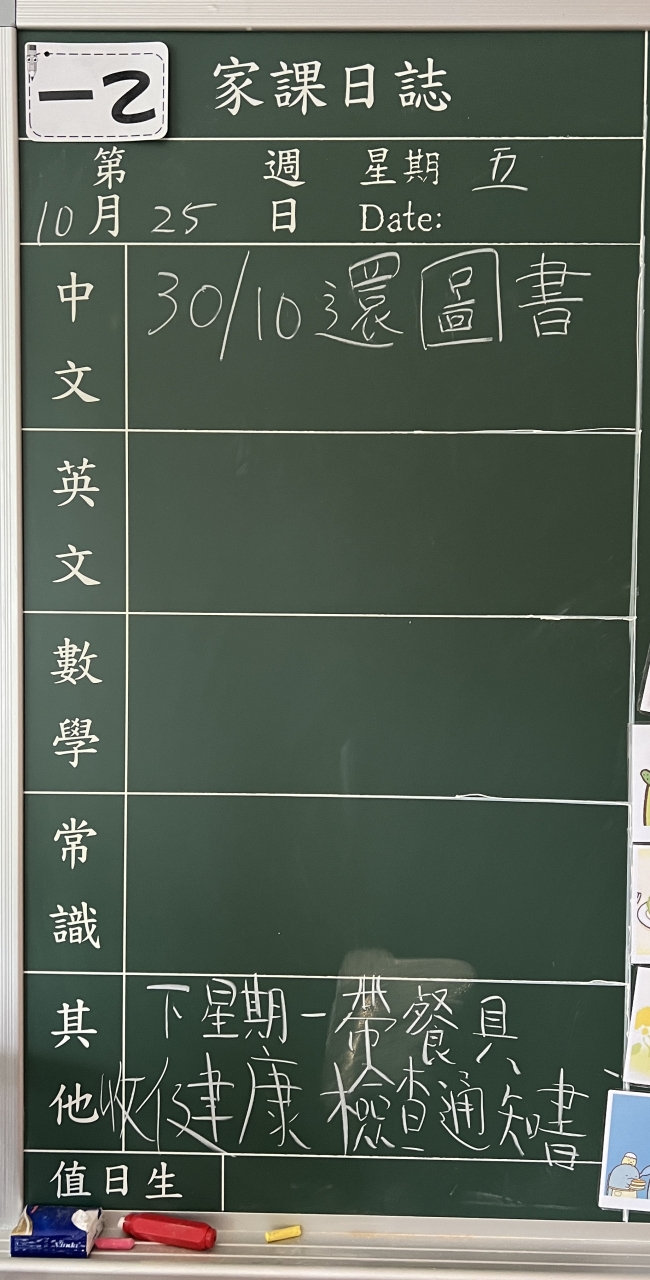 一乙
家課日誌
第 週 星期 五
10月 25 日 Date:
中文 30/10還圖書
英文
數學
常識
其他 下星期一帶餐具
收健康檢查通知書
值日生
Vinda